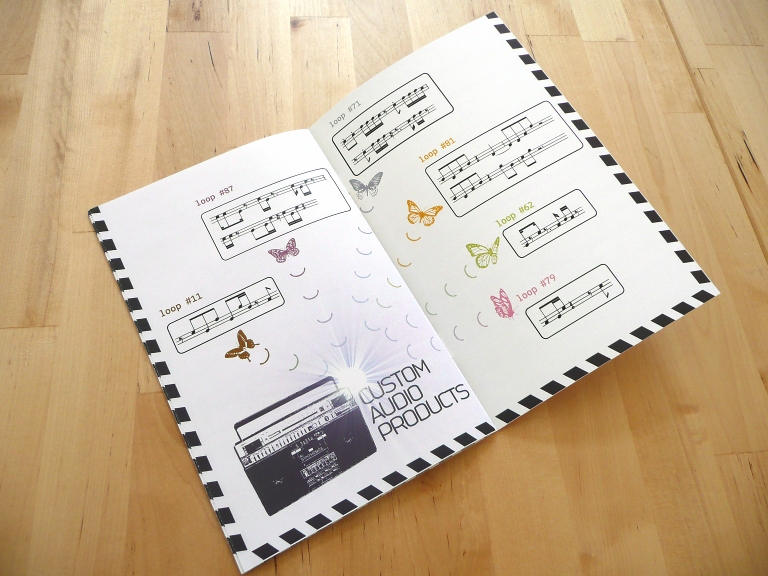 loop #87
loop #11
CUSTOM
AUDIO
PRODUCTS
loop #71
loop #81
loop #62
loop #79